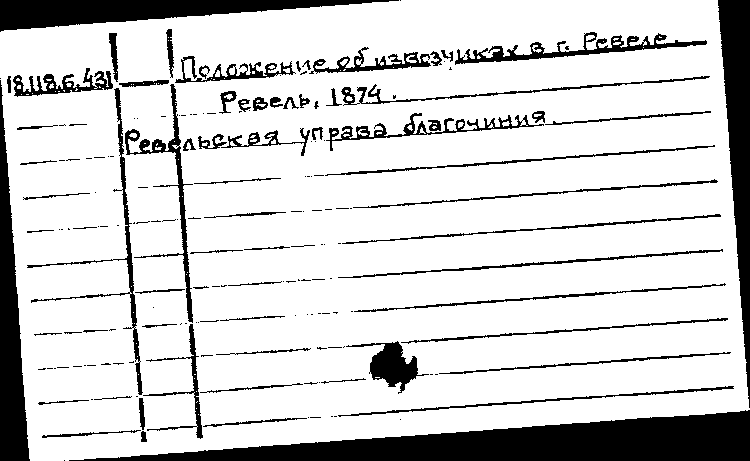 18.118.6.431 Положение об извозчиках в г. Ревеле.
Ревель, 1874.
Ревельская управа благочиния.